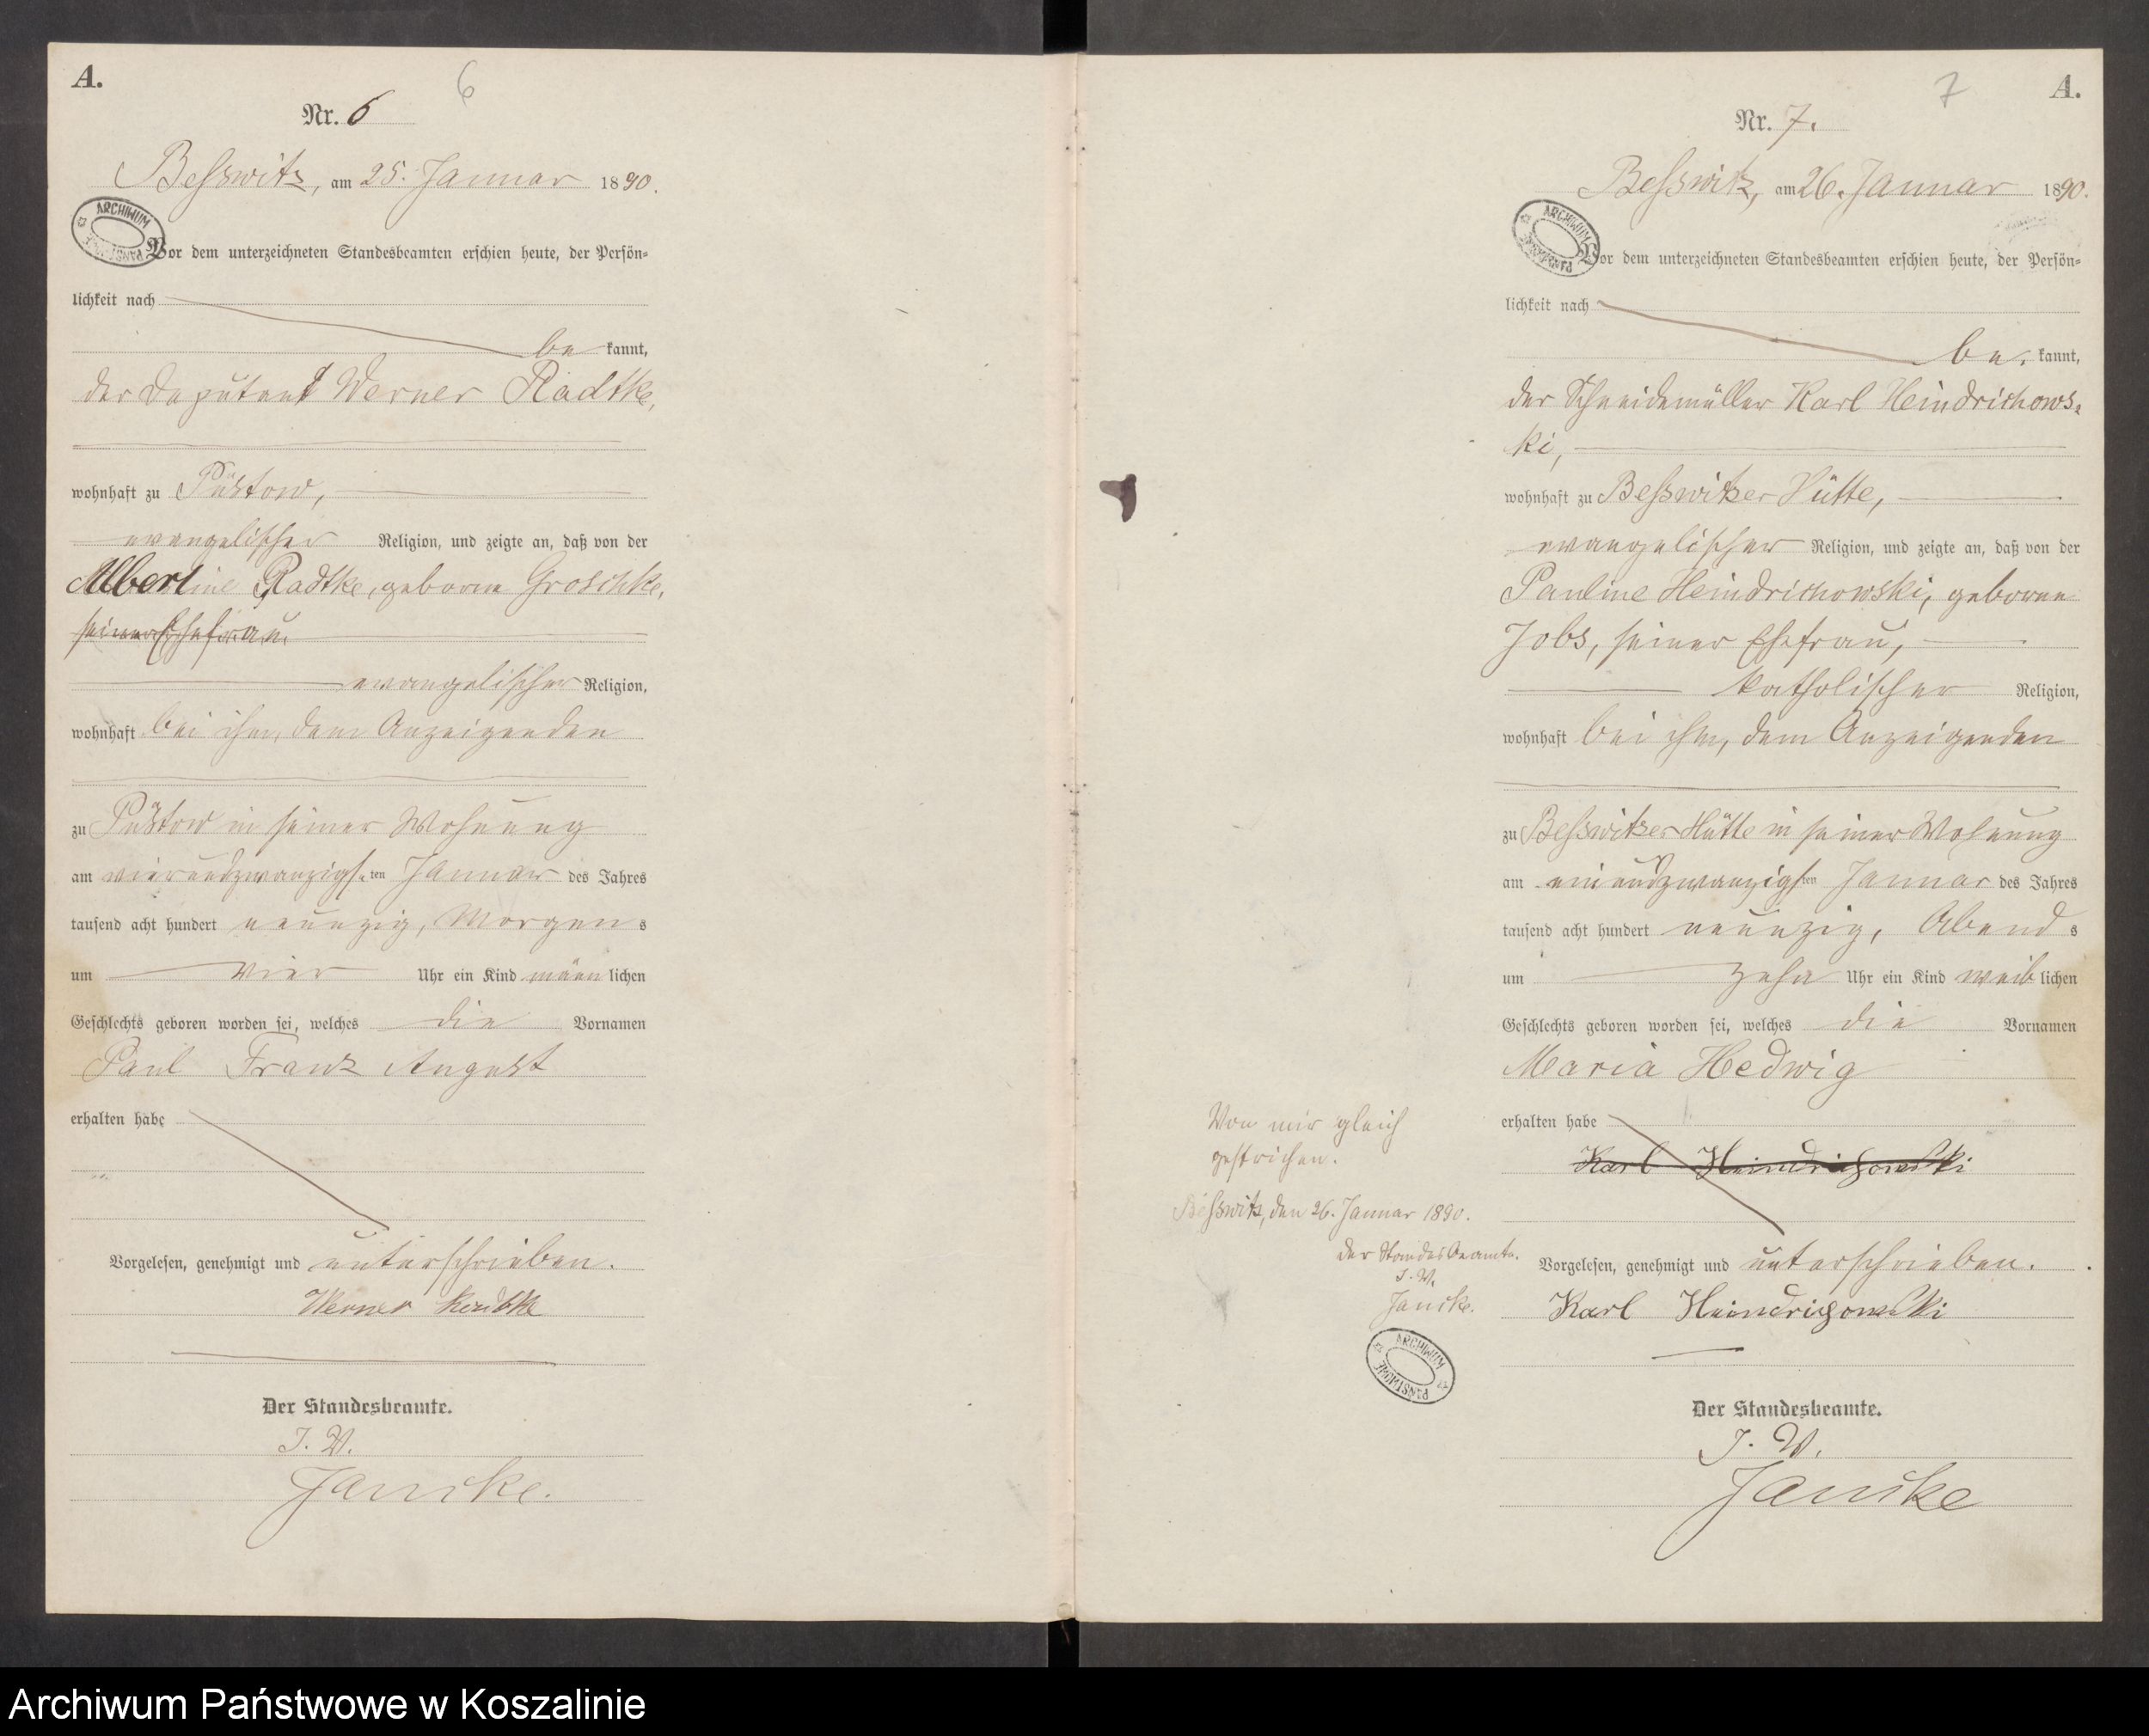 A.
6
Nr. 6
Beßwitz, am 25. Januar 1890.
ARCHIWUM PAŃSTWOWE
Vor dem unterzeichneten Standesbeamten erschien heute, der Persön=
lichkeit nach
be kannt,
der Deputant Werner Radtke,
wohnhaft zu Püstow,
evangelischer Religion, und zeigte an, daß von der
Albertine Radtke, geborne Groschke,
seiner Ehefrau
evangelischer Religion,
wohnhaft bei ihm, dem Anzeigenden
zu Püstow in seiner Wohnung
am vierundzwanzigsten Januar des Jahres
tausend acht hundert neunzig, Morgens
um vier Uhr ein Kind männlichen
Geschlechts geboren worden sei, welches die Vornamen
Paul Franz August
erhalten habe
Vorgelesen, genehmigt und unterschrieben.
Werner Radtke
Der Standesbeamte.
J. V.
Jancke.
7
A.
Nr. 7.
Beßwitz, am 26. Januar 1890.
ARCHIWUM PAŃSTWOWE
Vor dem unterzeichneten Standesbeamten erschien heute, der Persön=
lichkeit nach
be. kannt,
der Schneidemüller Karl Heindrichows=
ki,
wohnhaft zu Beßwitzer Hütte,
evangelischer Religion, und zeigte an, daß von der
Pauline Heindrichowski, geborne
Jobs, seiner Ehefrau,
katholischer Religion,
wohnhaft bei ihm, dem Anzeigenden
zu Beßwitzer Hütte in seiner Wohnung
am einundzwanzigsten Januar des Jahres
tausend acht hundert neunzig, Abends
um zehn Uhr ein Kind weiblichen
Geschlechts geboren worden sei, welches die Vornamen
Maria Hedwig
erhalten habe
Karl Heindrichowski
Von mir gleich
gestrichen.
Beßwitz, den 26. Januar 1890.
Der Standesbeamte.
J. V.
Jancke.
ARCHIWUM PAŃSTWOWE
Vorgelesen, genehmigt und unterschrieben.
Karl Heindrichowski
Der Standesbeamte.
J. V.
Jancke
Archiwum Państwowe w Koszalinie